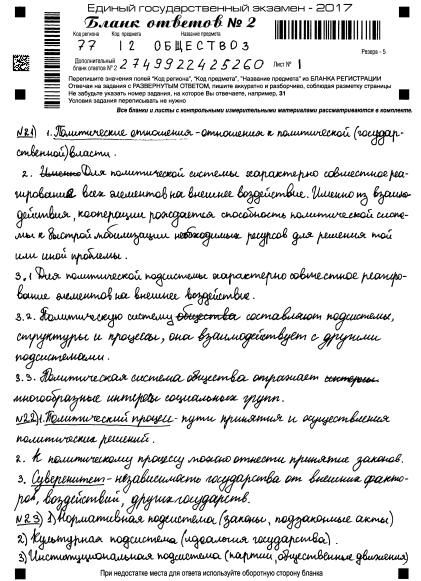 Единый государственный экзамен - 2017
Бланк ответов № 2
Код региона Код предмета Название предмета
77 12 ОБЩЕСТВОЗ
Резерв - 5
Дополнительный
бланк ответов № 2 2749922425260 Лист № 1
Перепишите значения полей "Код региона", "Код предмета", "Название предмета" из БЛАНКА РЕГИСТРАЦИИ
Отвечая на задания с РАЗВЕРНУТЫМ ОТВЕТОМ, пишите аккуратно и разборчиво, соблюдая разметку страницы
Не забудьте указать номер задания, на которое Вы отвечаете, например, 31
Условия задания переписывать не нужно
Все бланки и листы с контрольными измерительными материалами рассматриваются в комплекте.
№21) 1. Политические отношения - отношения к политической (государ-
ственной) власти.
2. Именно Для политической системы характерно совместное реа-
гирование всех элементов на внешнее воздействие. Именно из взаимо-
действия, кооперации рождается способность политической систе-
мы к быстрой мобилизации необходимых ресурсов для решения той
или иной проблемы.
3.1 Для политической подсистемы характерно совместное реагиро-
вание элементов на внешнее воздействие.
3.2. Политическую систему общества составляют подсистемы,
структуры и процессы, она взаимодействует с другими
подсистемами.
3.3. Политическая система общества отражает интересы
многообразные интересы социальных групп.
№22) 1. Политический процесс - пути принятия и осуществления
политических решений.
2. К политическому процессу можно отнести принятие законов.
3. Суверенитет - независимость государства от внешних факто-
ров, воздействий, других государств.
№23) 1) Нормативная подсистема (законы, подзаконные акты)
2) Культурная подсистема (идеология государства).
3) Институциональная подсистема (партии, общественные движения)
При недостатке места для ответа используйте оборотную сторону бланка